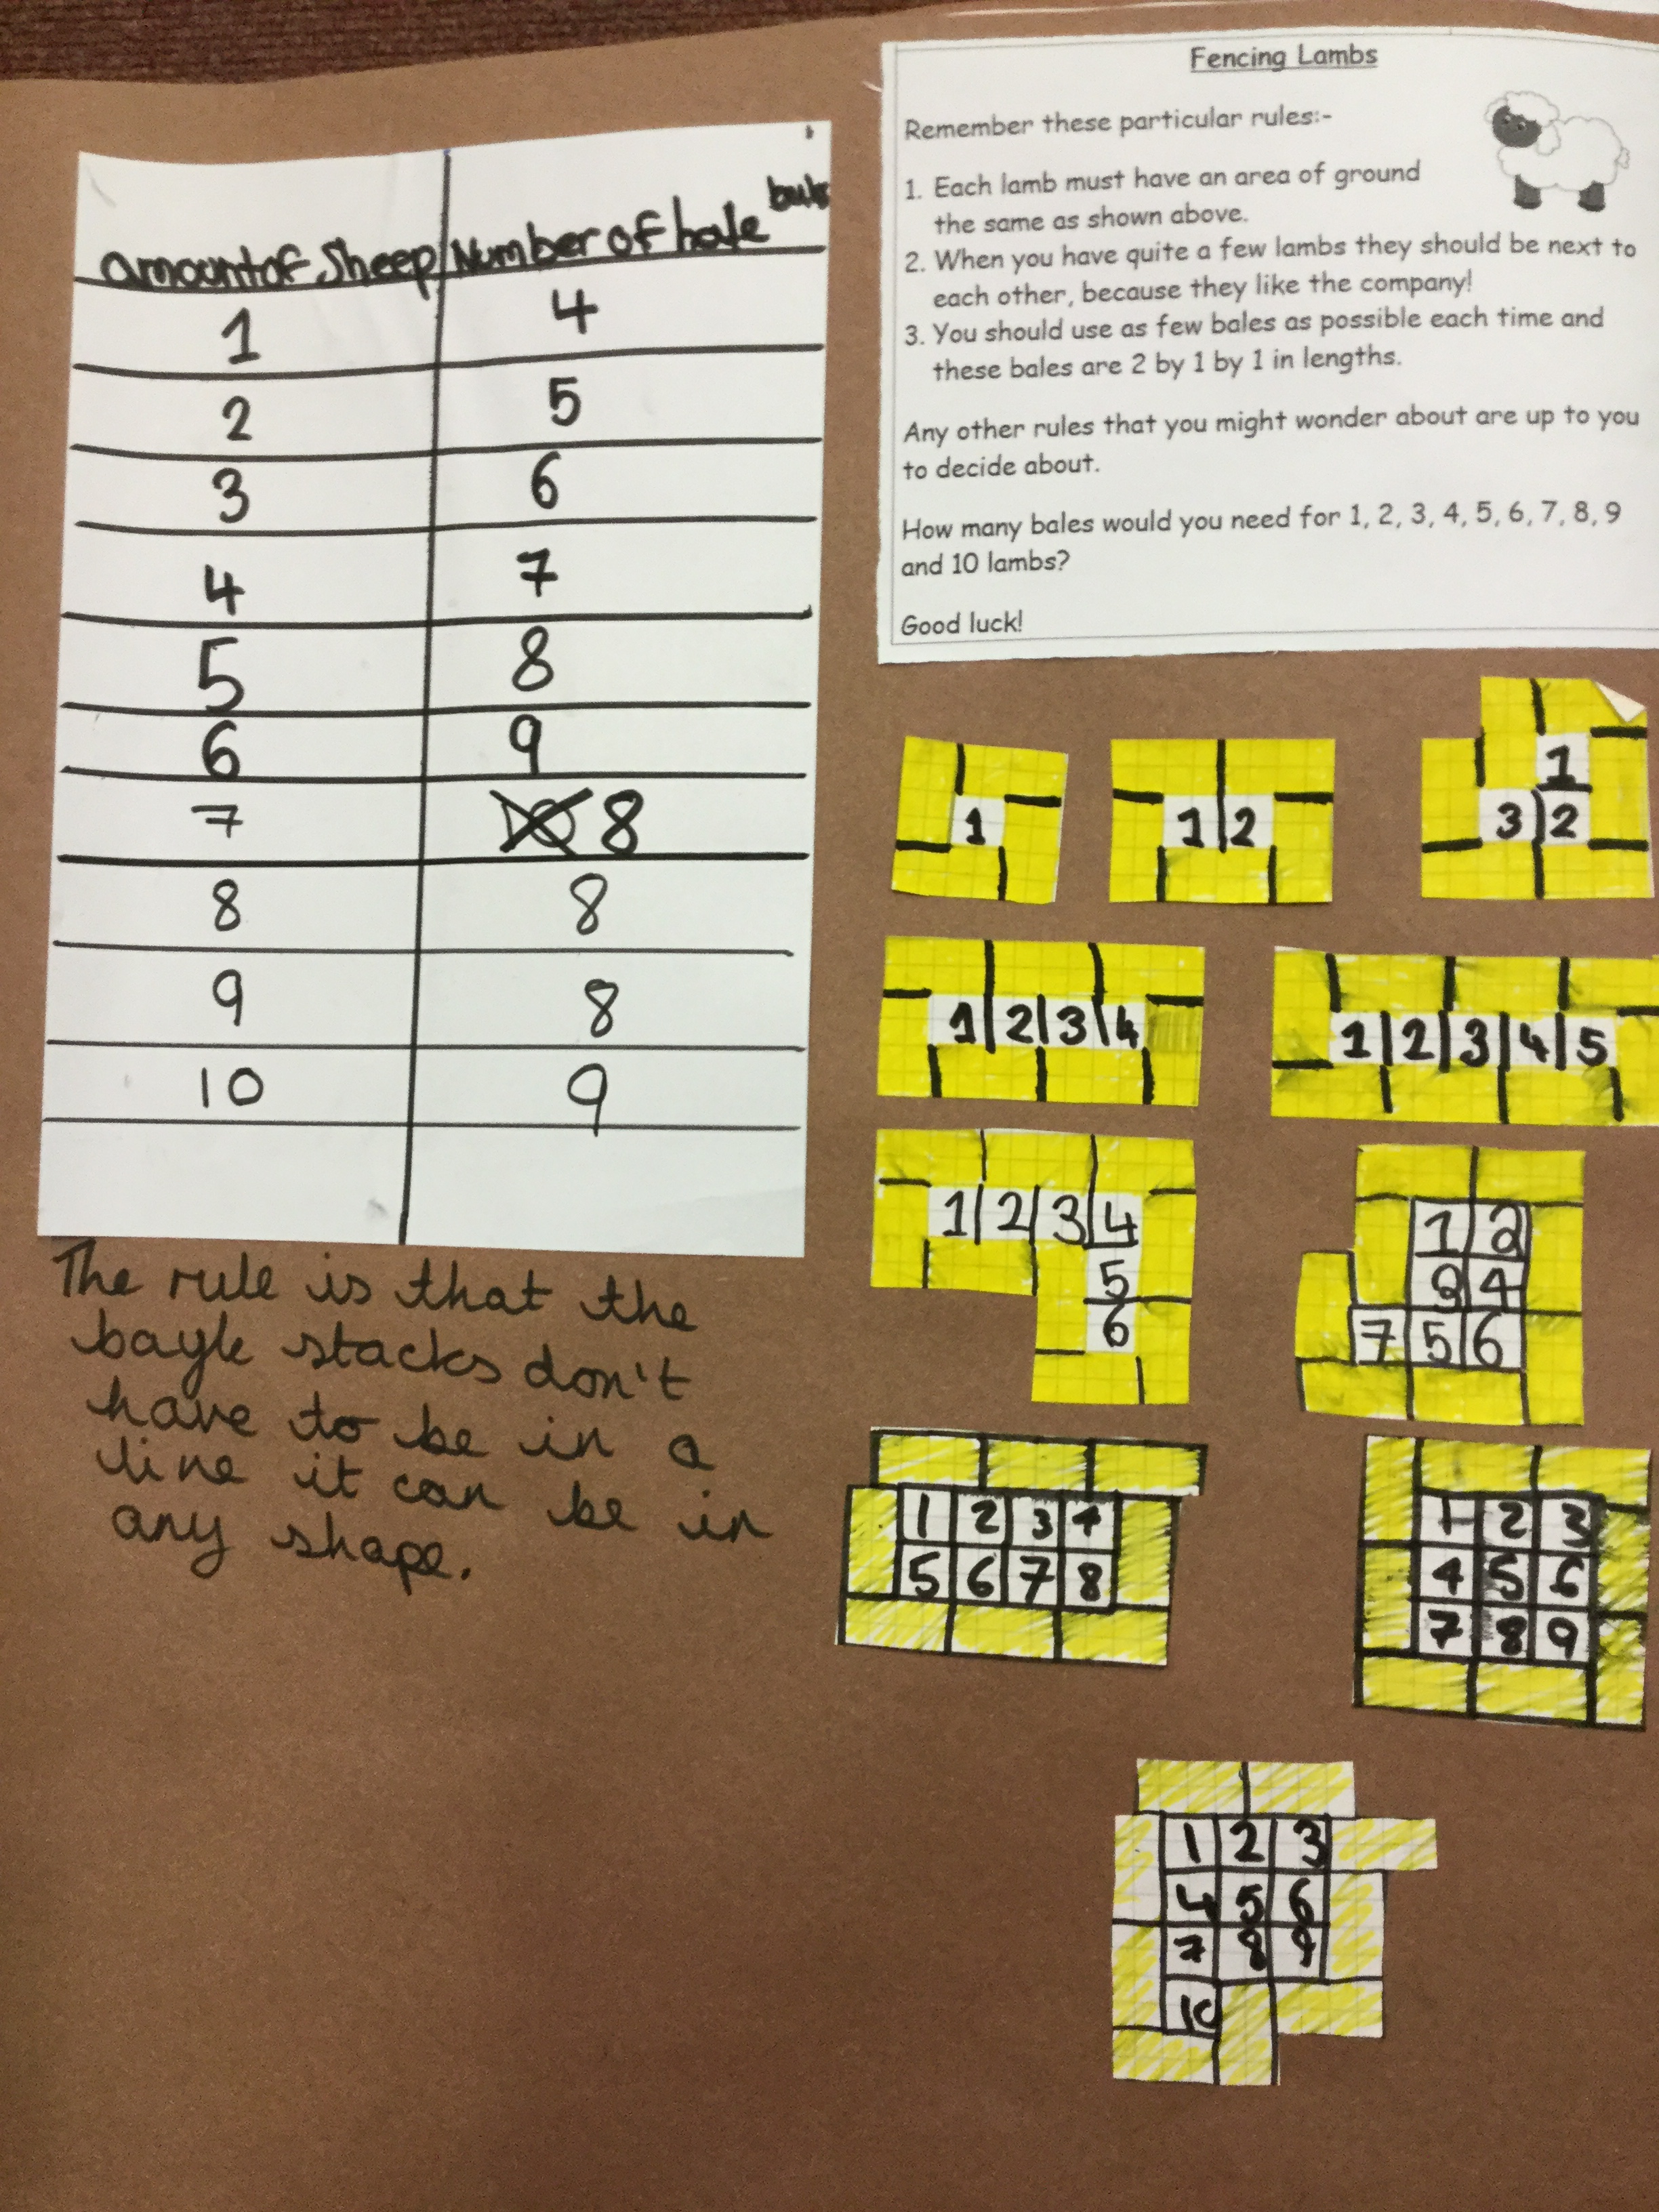 amount of sheep Number of hale
1 4
2 5
3 6
4 7
5 8
6 9
7 8
8 8
9 8
10 9
The rule is that the
bayle stacks don't
have to be in a
line it can be in
any shape.
Fencing Lambs
Remember these particular rules:-
1. Each lamb must have an area of ground
the same as shown above.
2. When you have quite a few lambs they should be next to
each other, because they like the company!
3. You should use as few bales as possible each time and
these bales are 2 by 1 by 1 in lengths.
Any other rules that you might wonder about are up to you
to decide about.
How many bales would you need for 1, 2, 3, 4, 5, 6, 7, 8, 9
and 10 lambs?
Good luck!
1
1 2
1
3 2
1 2 3 4
1 2 3 4 5
1 2 3 4
5
6
1 2
4
7 5 6
1 2 3 4
5 6 7 8
1 2 3
4 5 6
7 8 9
1 2 3
4 5 6
7 8 9
10